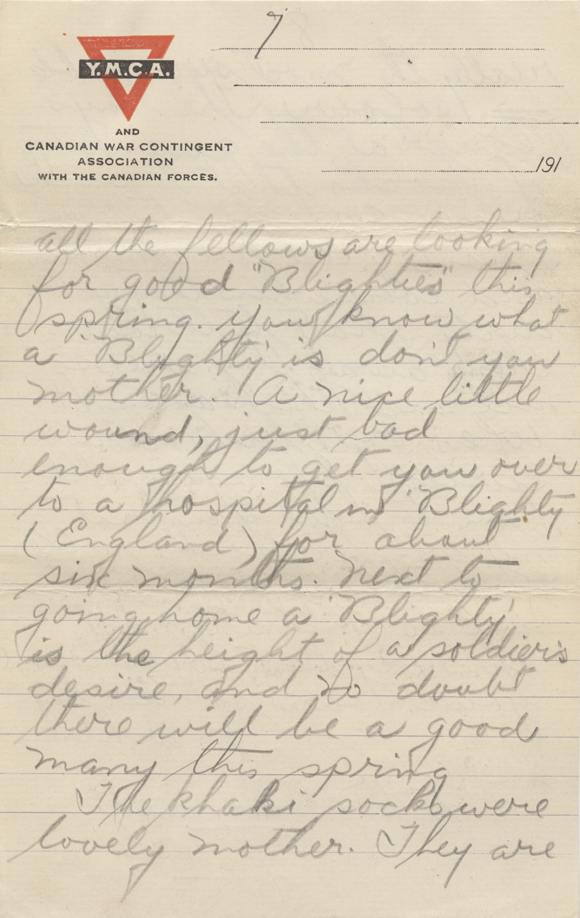 7
Y.M.C.A.
AND
CANADIAN WAR CONTINGENT
ASSOCIATION
WITH THE CANADIAN FORCES.
191
all the fellows are looking
for good "Blighties" this
spring. you know what
a 'Blighty' is don't you
mother. A nice little
wound, just bad
enough to get you over
to a hospital in 'Blighty
(England) for about
six months. Next to
going home a 'Blighty'
is the height of a soldier's
desire, and no doubt
there will be a good
many this spring
The khaki socks were
lovely mother. They are